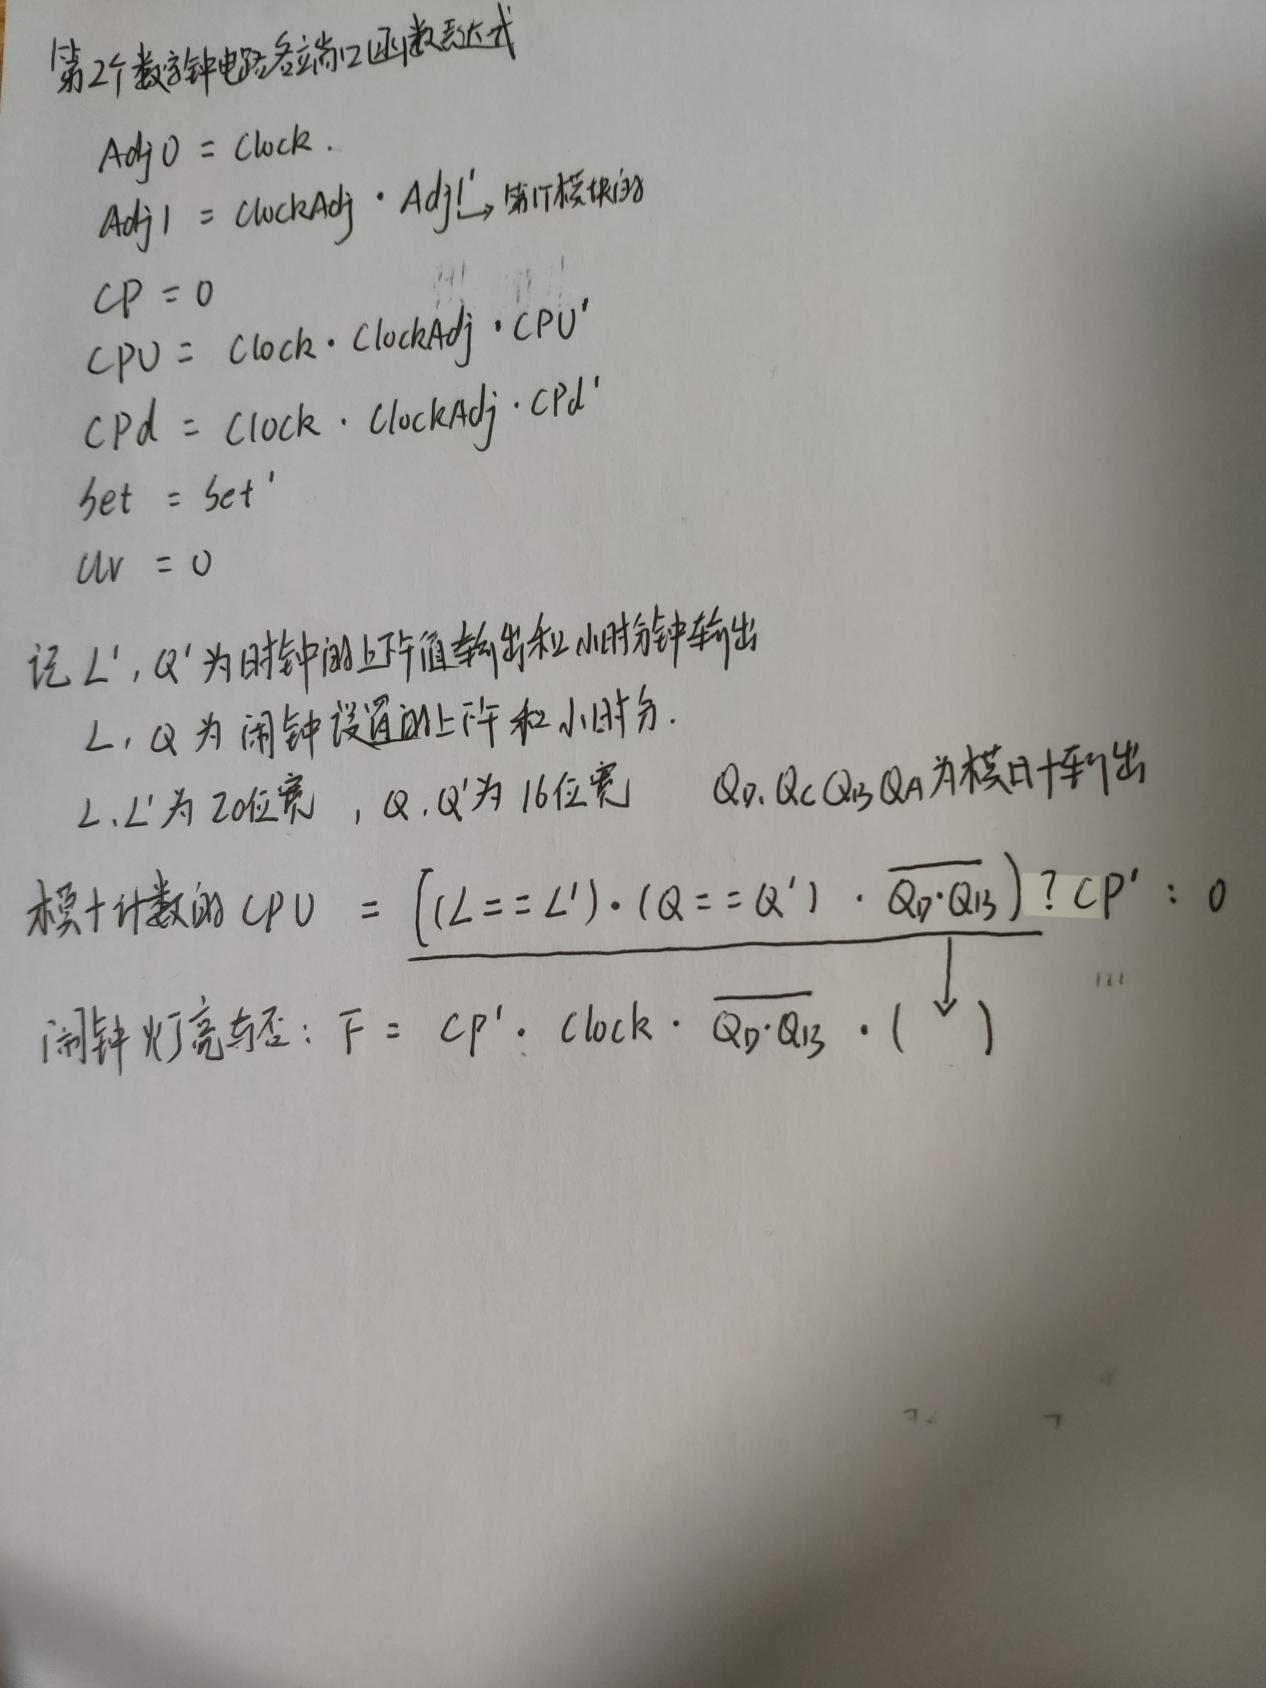 第2个数字钟电路各端口函数表达式
Adj0 = Clock.
Adj1 = ClockAdj · Adj1' → 第1个模块的
CP = 0
CPU = Clock · ClockAdj · CPU'
CPd = Clock · ClockAdj · CPd'
Set = Set'
= 0
记 L', Q' 为时钟的上下午值输出和小时分钟输出
L, Q 为闹钟设置的上下午和小时分.
L, L' 为 20位宽, Q, Q' 为 16位宽 QD, QC QB QA 为模十输出
模十计数的 CPU = [(L==L')·(Q==Q') · \overline{QD·QB}) ? CP' : 0
闹钟灯亮与否: F = CP' · Clock · \overline{QD·QB} · ( ↓ )